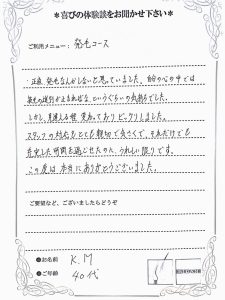 ＊喜びの体験談をお聞かせ下さい＊
ご利用メニュー： 発毛コース
正直、発毛なんかしないと思っていました。自分の心の中では
発毛の遅れが止まればな、というぐらいの気持ちでした。
しかし、見違える程 変わっており ビックリしました。
スタッフの対応もとても親切で良くて、それだけでも
充実した時間を過ごせたのに、うれしい限りです。
この度は本当にありがとうございました。
ご要望など、ございましたらどうぞ
●お名前 K.M
●ご年齢 40代